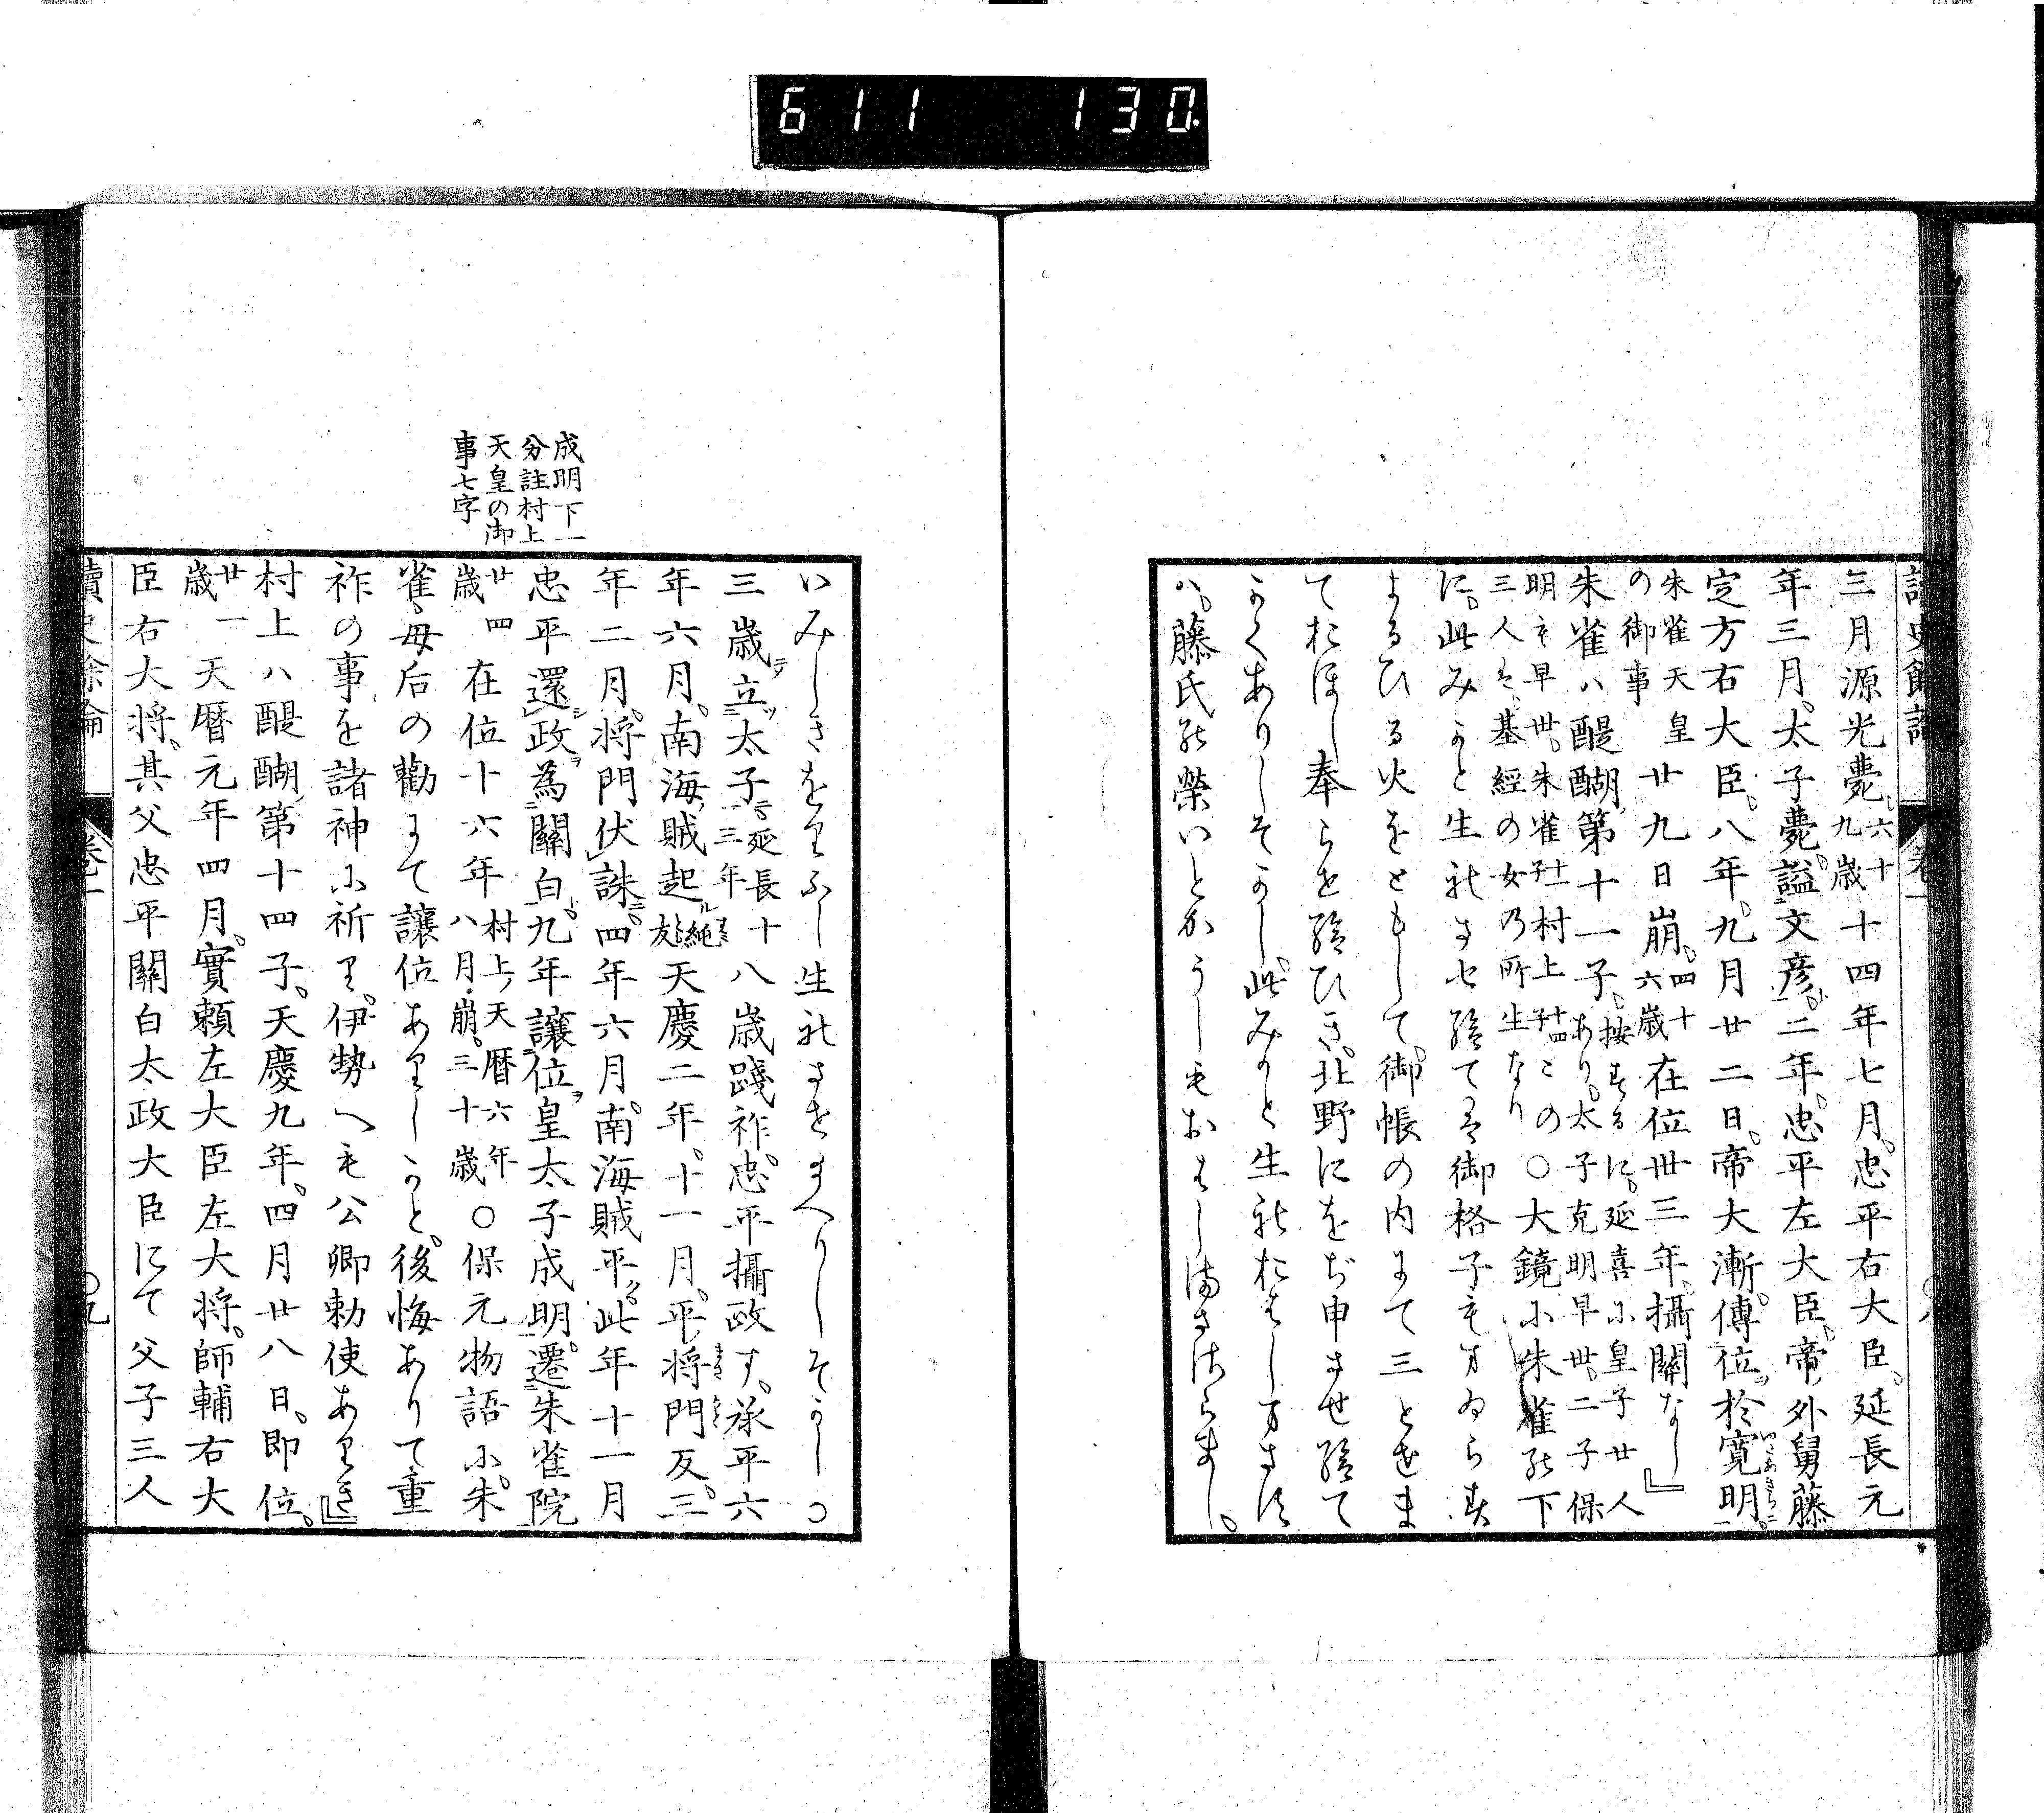 611 130
讀史餘論 卷一 〇八
三月源光薨。六十九歳十四年七月。忠平右大臣。延長元
年三月。太子薨。謚文彦。二年。忠平左大臣。帝ノ外舅藤
定方右大臣。八年。九月廿二日。帝大漸。傳位ヲ於寛明。
朱雀天皇の御事廿九日崩。四十六歳在位卅三年。攝關なし』
朱雀ハ醍醐ノ第十一子。按するに。延喜に皇子廿人あり。太子克明早世。二子保
明も早世。朱雀十一子村上十四子この三人は。基經の女乃所生なり〇大鏡に朱雀の下
に。此みかと生れさせ給ては御格子もまゐらす
よるひる火をともして。御帳の内にて三とせま
ておほし奉らせ給ひき。北野にをぢ申させ給て
かくありしそかし。此みかと生れおはしまさす
ハ。藤氏の榮いとかうしもおはしまさゝらまし。
いみしきをりふし生れさせまへりしそかし〇
三歳ニテ立ツ太子ニ延長三年十八歳踐祚。忠平攝政す。承平六
年六月。南海ノ賊起ル純友天慶二年。十一月。平ノ將門反。三
年二月。將門伏誅ニ。四年六月。南海賊平ク。此年十一月
忠平還シ政ヲ為關白。九年讓位ヲ皇太子成明。遷朱雀院
廿四歳在位十六年村上ノ天暦六年八月。崩。三十歳〇保元物語に。朱
雀。母后の勸にて讓位ありしかと。後悔ありて重
祚の事を諸神に祈り。伊勢へも公卿勅使ありき』
村上ハ醍醐ノ第十四子。天慶九年。四月廿八日。即位。
廿一歳天暦元年四月。實頼左大臣左大将。師輔右大
臣右大将。其父忠平關白太政大臣にて父子三人
讀史餘論 卷一 〇九
成明下一
分註村上
天皇の御
事七字